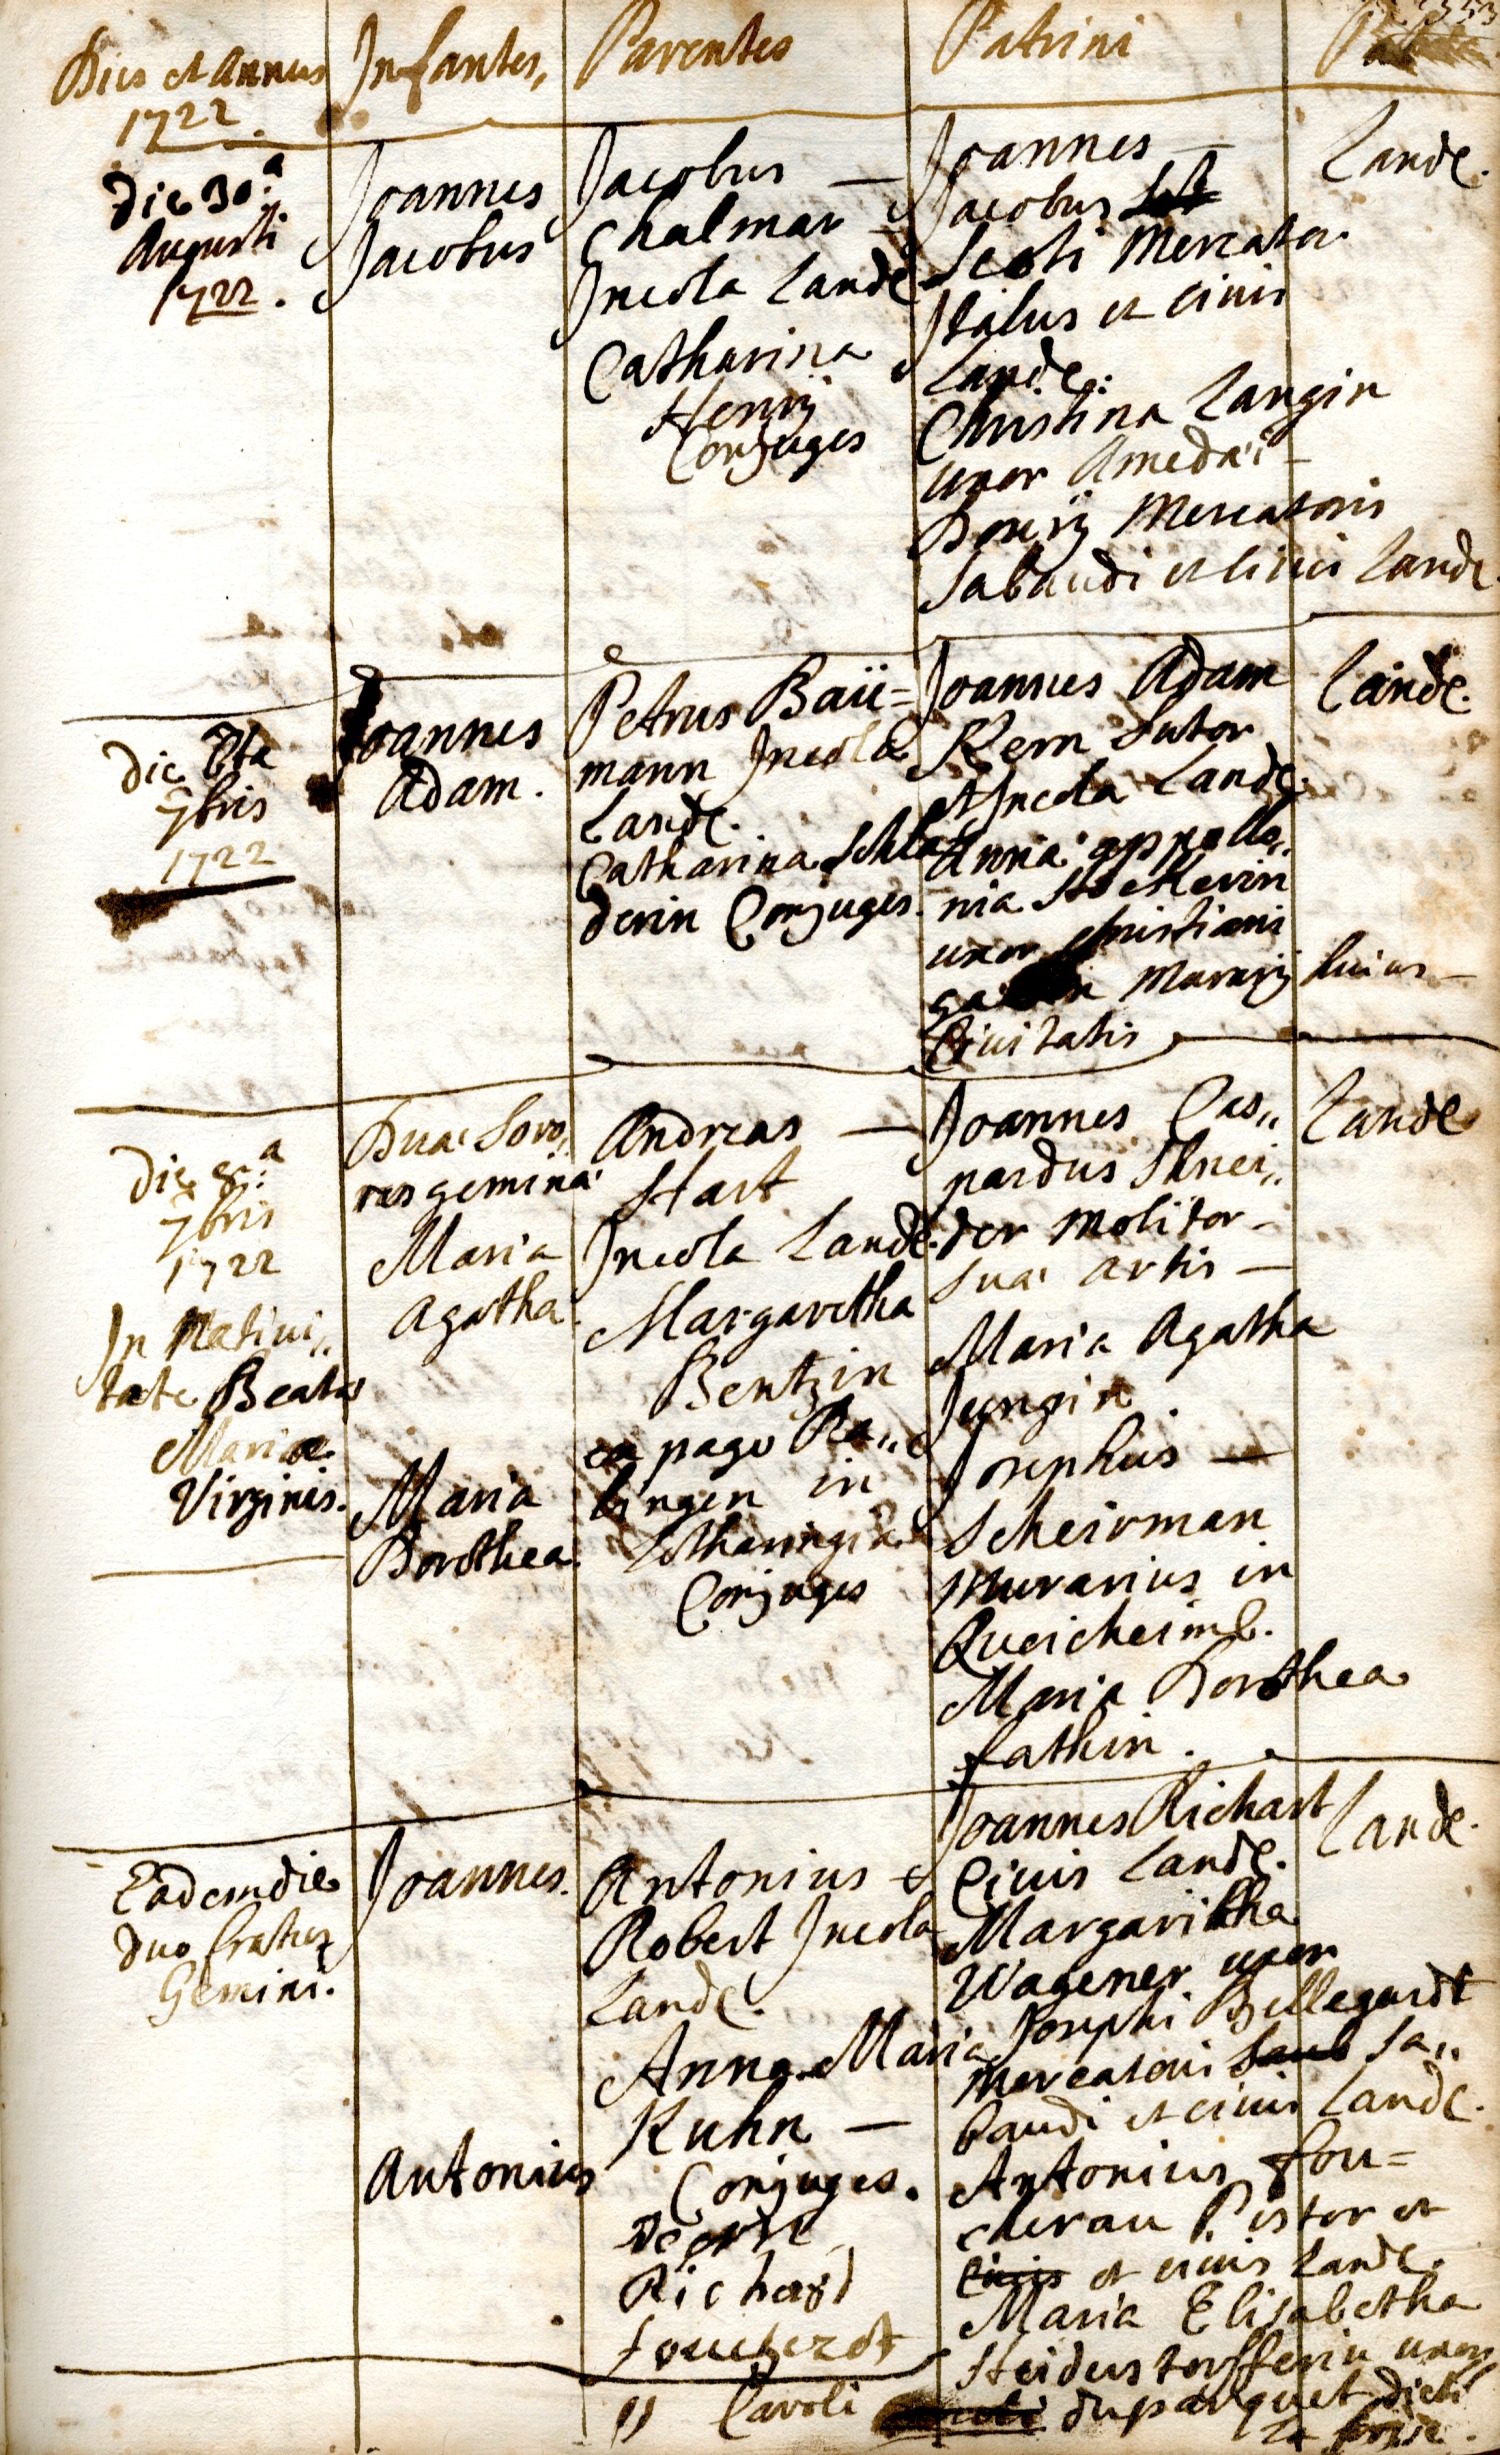 353
Dies et Annus Infantes, Parentes Patrini
1722.
Die 30.a
Augusti
1722.
Joannes
Jacobus
Jacobus —
Chalmar —
Incola Landę
Catharina
Henrij
Conjuges
Joannes —
Jacobus
Scoti Mercator
Italus et Civis
Landę:
Christina Langin
uxor Amedæi —
Borerij Mercatoris
Sabaudi et Civis Landę.
Landę.
Die
7bris
1722
Joannes
Adam.
Petrus Baü=
mann Incola
Landę.
Catharina Schla
derin Conjuges.
Joannes Adam
Kern Sutor
et Incola Landę.
Anna appollo,,
nia Stockerin
uxor Christiani
Murarij huius —
Civitatis
Landę.
Die 8.a
7bris
1722
In Nativi,,
tate Beatæ
Mariæ
Virginis.
Duæ Soro,,
res geminæ
Maria
Agatha.
Maria
Dorothea.
Andreas —
Hart
Incola Landę.
Margaretha
Bentzin
ex pago Ra,,
lingen in
Lotharingia
Conjuges
Joannes Cas,,
pardus Shnei,,
der Molitor —
suæ artis —
Maria Agatha
Jungin.
Josephus —
Scheirman
Murarius in
Queicheimb.
Maria Dorothea
fathin.
Landę
Eadem die
duo fratres
Gemini.
Joannes.
Antonius
Antonius
Robert Incola
Landę.
Anna Maria
Kuhn —
Conjuges.
Richard
Joannes Richart
Civis Landę.
Margaritha
Wagener uxor
Josephi Bellegardt
Mercatoris Sa,,
baudi et civis Landę.
Antonius Fou=
cherau Pistor et
Civis et civis Landę.
Maria Elisabetha
Heidenstorfferin uxor
,, Caroli duparquet dicti
la brise.
Landę.